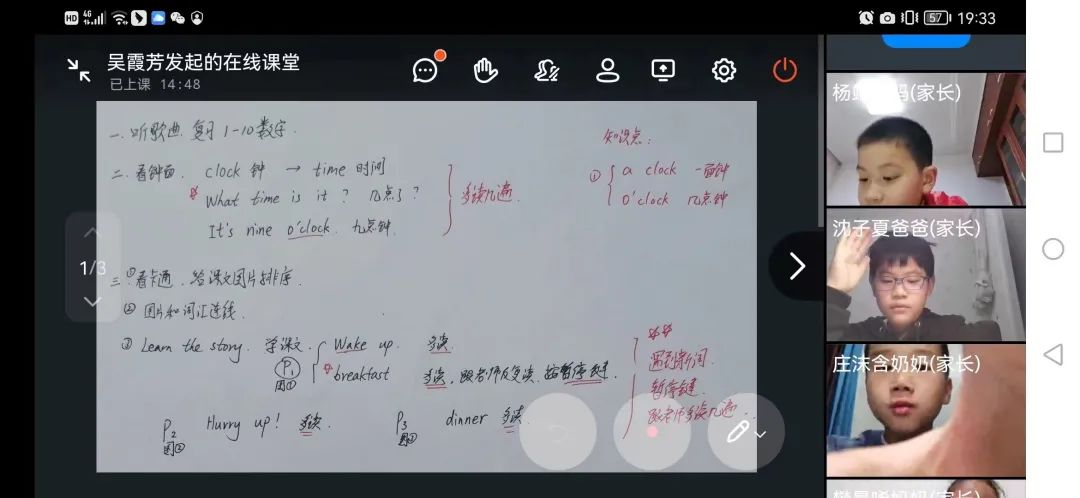 HD 4G
57 19:33
吴霞芳发起的在线课堂
已上课 14:48
一. 听歌曲 复习 1-10 数字.
二. 看钟面. clock 钟 → time 时间
What time is it? 几点了?
It's nine o'clock. 九点钟.
多读几遍.
知识点:
① a clock 一面钟
o'clock 几点钟
1/3
三. ①看卡通. 给课文图片排序.
② 图片和词汇连线.
③ Learn the story. 学课文.
P1 图①
Wake up. 多读.
breakfast 多读, 跟老师反复读. 按暂停键.
遇到新词
暂停键
跟老师多读几遍.
P2 图② Hurry up! 多读.
P3 图③ dinner 多读.
妈(家长)
沈子夏爸爸(家长)
庄沫含奶奶(家长)